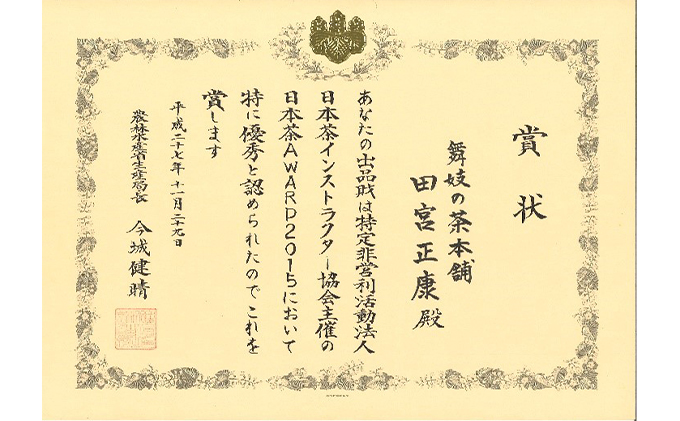 賞状
舞妓の茶本舗
田宮正康殿
あなたの出品財は特定非営利活動法人
日本茶インストラクター協会主催の
日本茶AWARD2015において
特に優秀と認められたのでこれを
賞します
平成二十七年十一月二十九日
農林水産省生産局長 今城健晴